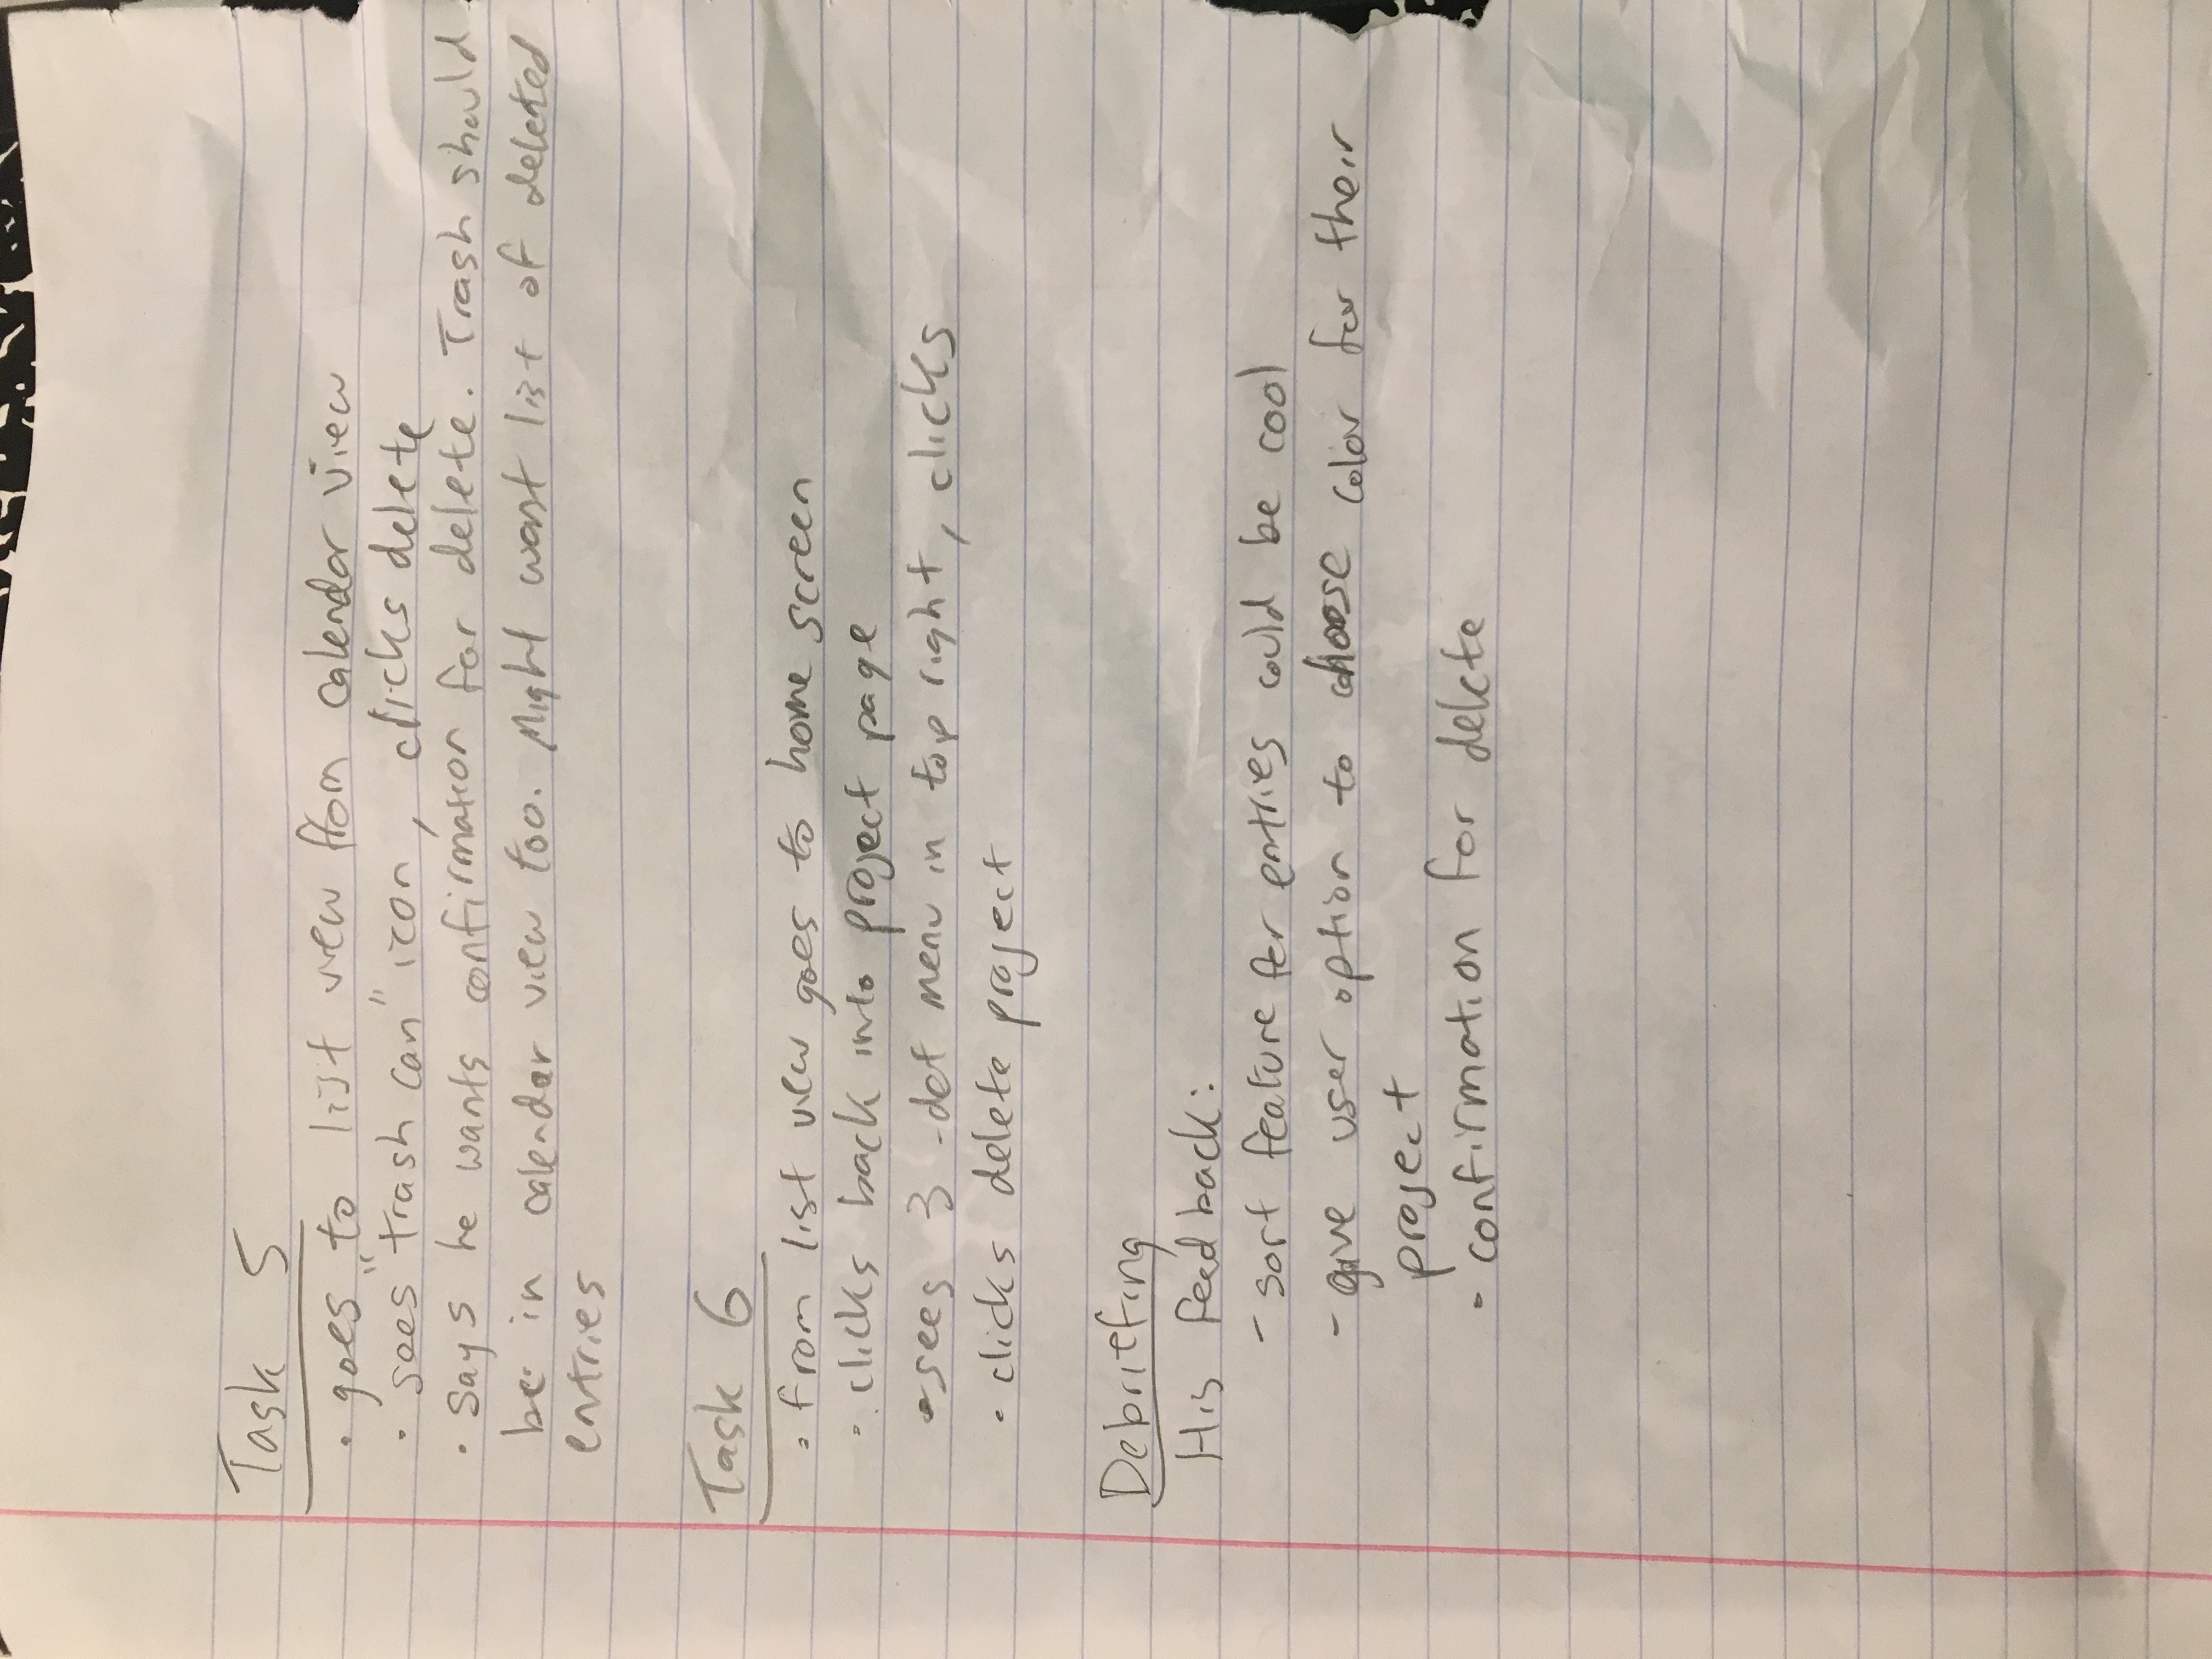 Task 5
• goes to list view from calendar view
• sees "trash can" icon, clicks delete
• says he wants confirmation for delete. Trash should
be in calendar view too. Might want list of deleted
entries
Task 6
• from list view goes to home screen
• clicks back into project page
• sees 3-dot menu in top right, clicks
• clicks delete project
Debriefing
His feedback:
- sort feature for entries could be cool
- give user option to choose color for their
project
• confirmation for delete